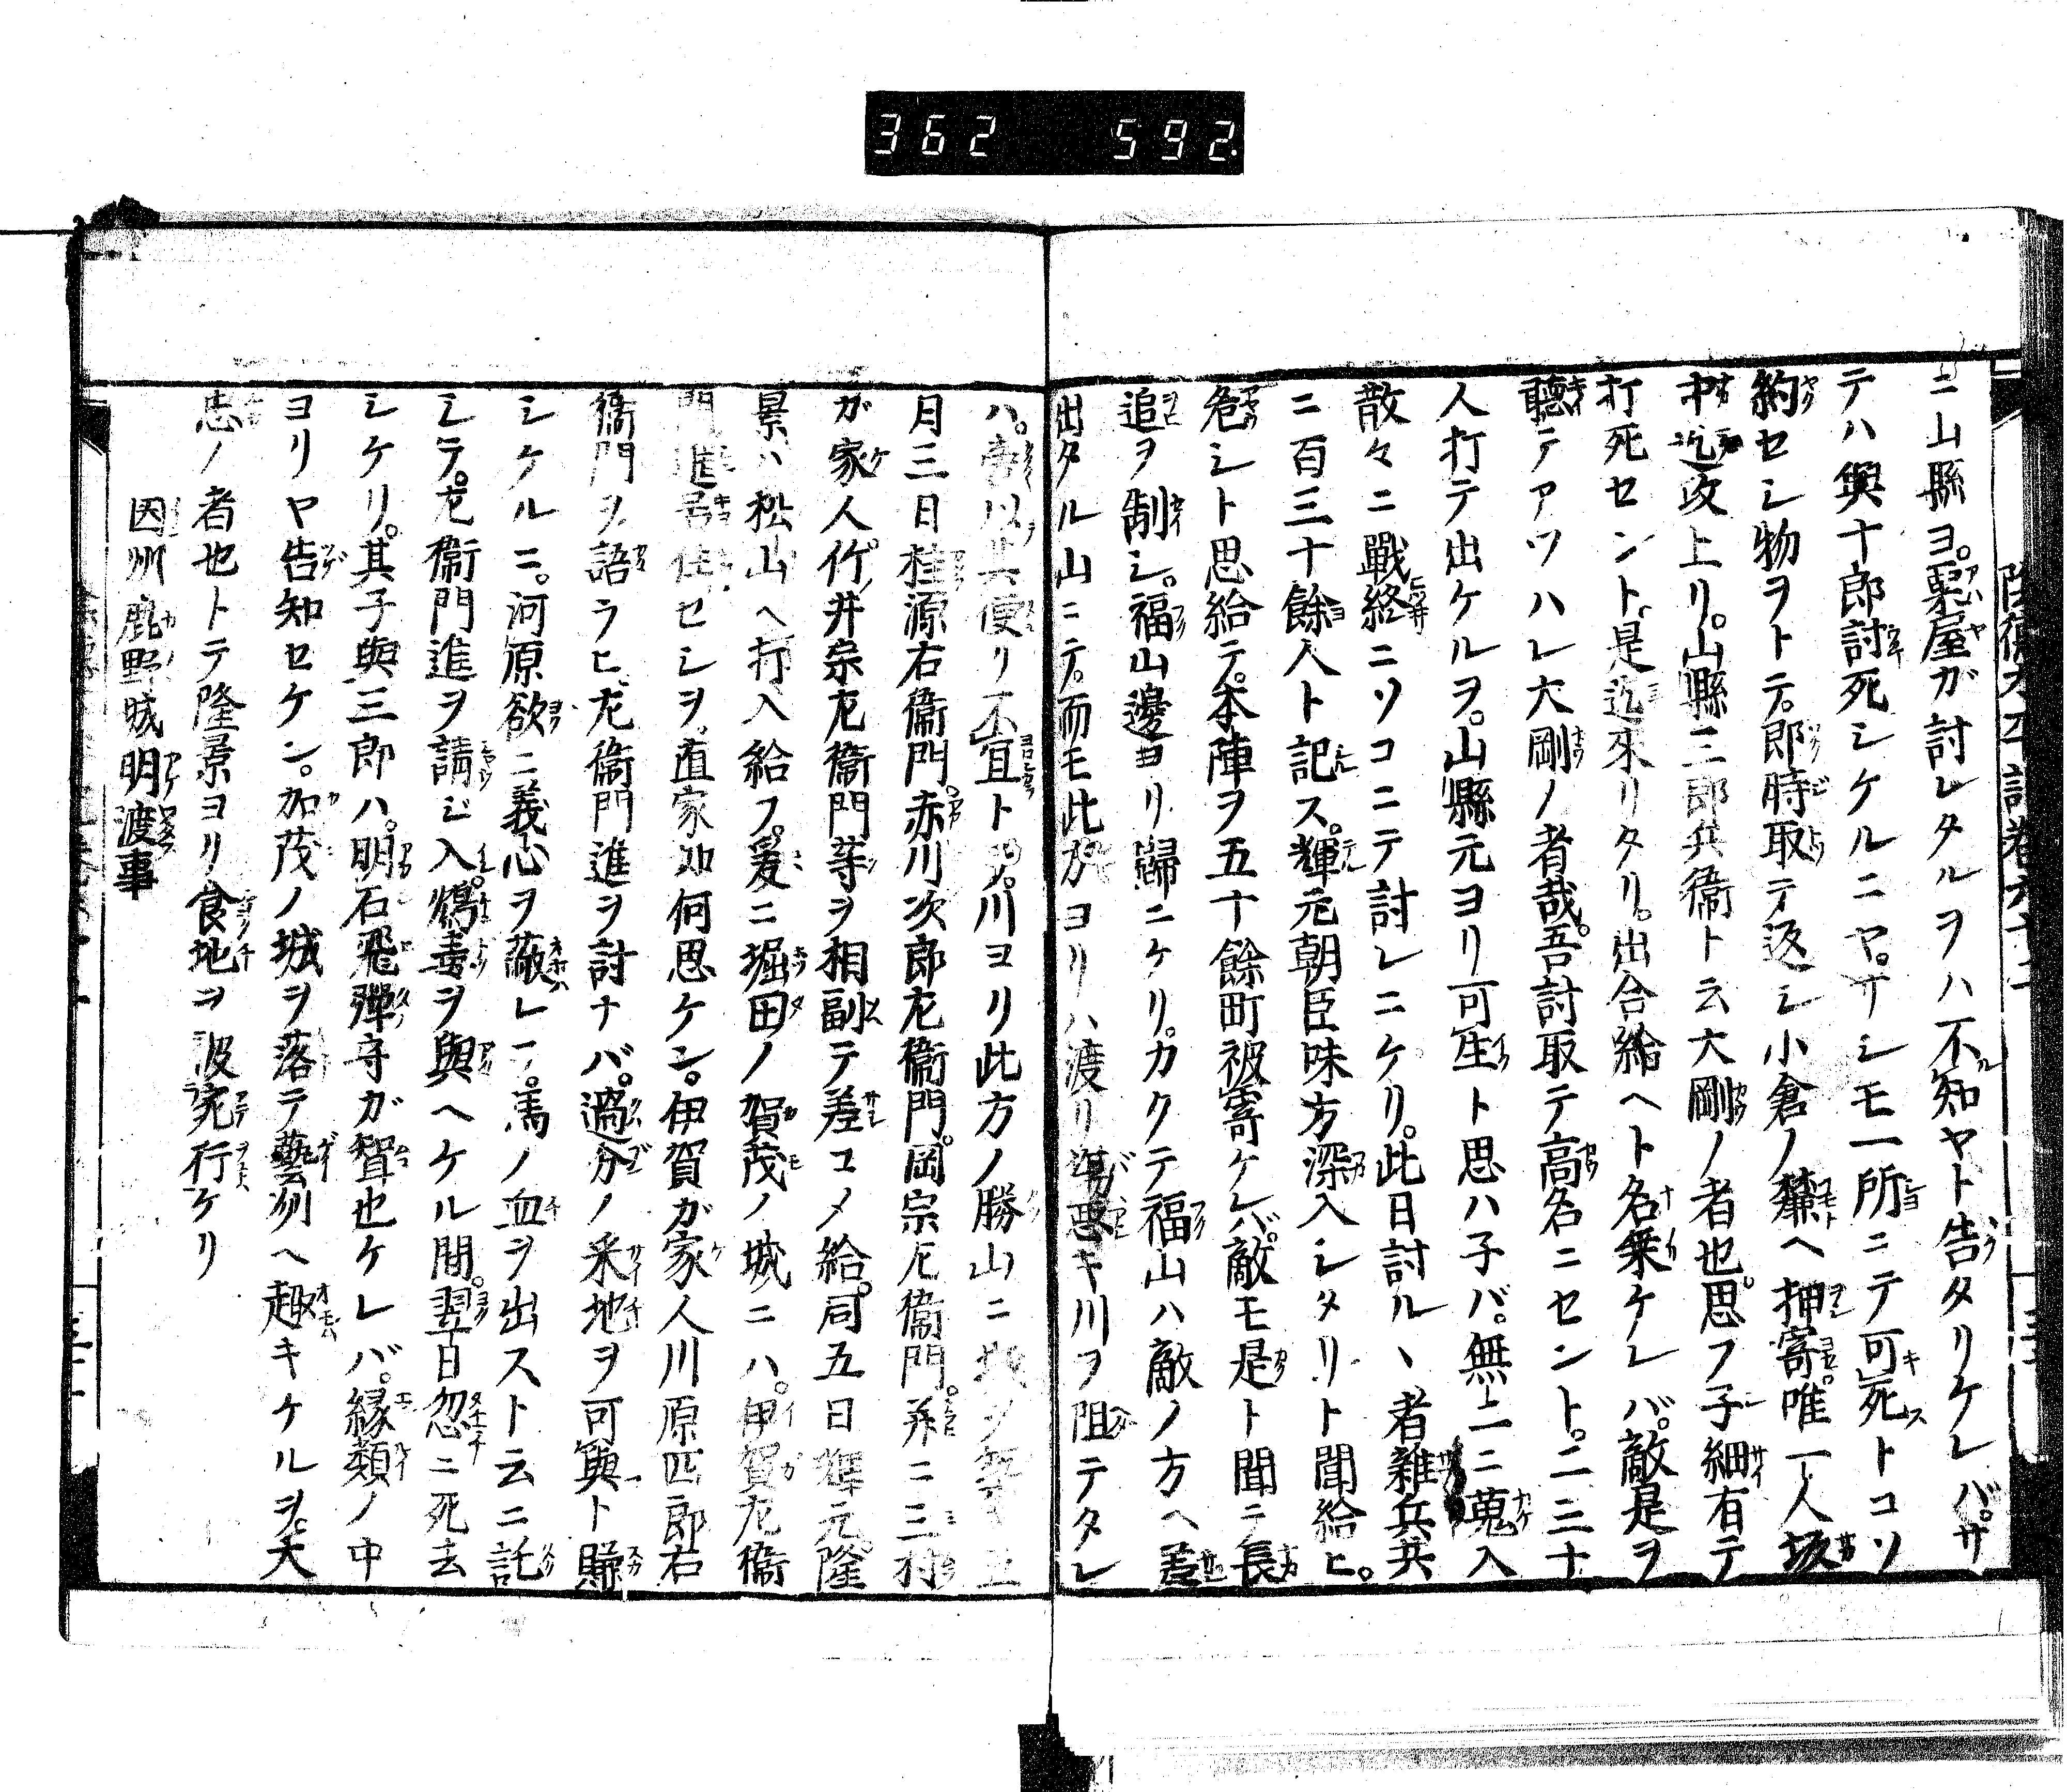 362 592
ニ山縣ヨ。粟屋ガ討レタルヲハ不知ヤト告タリケレバ。サ
テハ與十郎討死シケルニヤ。サシモ一所ニテ可死トコソ
約セシ物ヲトテ。即時取テ返シ小倉ノ麓ヘ押寄。唯一人坂
中迄攻上リ。山縣三郎兵衞ト云大剛ノ者也。思フ子細有テ
打死セント。是迄來リタリ。出合給ヘト名乗ケレバ。敵是ヲ
聽テアツハレ大剛ノ者哉。吾討取テ高名ニセント。二三十
人打テ出ケルヲ。山縣元ヨリ可生ト思ハ子バ。無二ニ蒐入
散々ニ戰終ニソコニテ討レニケリ。此日討ルヽ者雜兵共
ニ百三十餘人ト記ス。輝元朝臣味方深入シタリト聞給ヒ。
危シト思給テ。本陣ヲ五十餘町被寄ケレバ。敵モ是ト聞テ長
追ヲ制シ。福山邊ヨリ歸ニケリ。カクテ福山ハ敵ノ方ヘ差
出タル山ニテ。而モ此方ヨリハ渡リ場悪キ川ヲ阻テタレ
ハ。以其便リ不宜ト川ヨリ此方ノ勝山ニ
月三日桂源右衞門。赤川次郎左衞門。岡宗左衞門。并ニ三村
ガ家人竹井宗左衞門等ヲ相副テ差コメ給。同五日輝元。隆
景ハ松山ヘ打入給フ。爰ニ堀田ノ賀茂ノ城ニハ。伊賀左衞
門進居住セシヲ。直家如何思ケン。伊賀ガ家人川原匹郎右
衞門ヲ語ラヒ。左衞門進ヲ討ナバ。過分ノ釆地ヲ可與ト賺
シケルニ。河原欲ニ義心ヲ蔽レテ。馬ノ血ヲ出スト云ニ託
シテ。左衞門進ヲ請ジ入。鴆毒ヲ與ヘケル間。翌日忽ニ死去
シケリ。其子與三郎ハ。明石飛彈守ガ聟也ケレバ。縁類ノ中
ヨリヤ告知セケン。加茂ノ城ヲ落テ藝州ヘ趣キケルヲ。大
忠ノ者也トテ隆景ヨリ食地ヲ被宛行ケリ
因州鹿野城明渡事